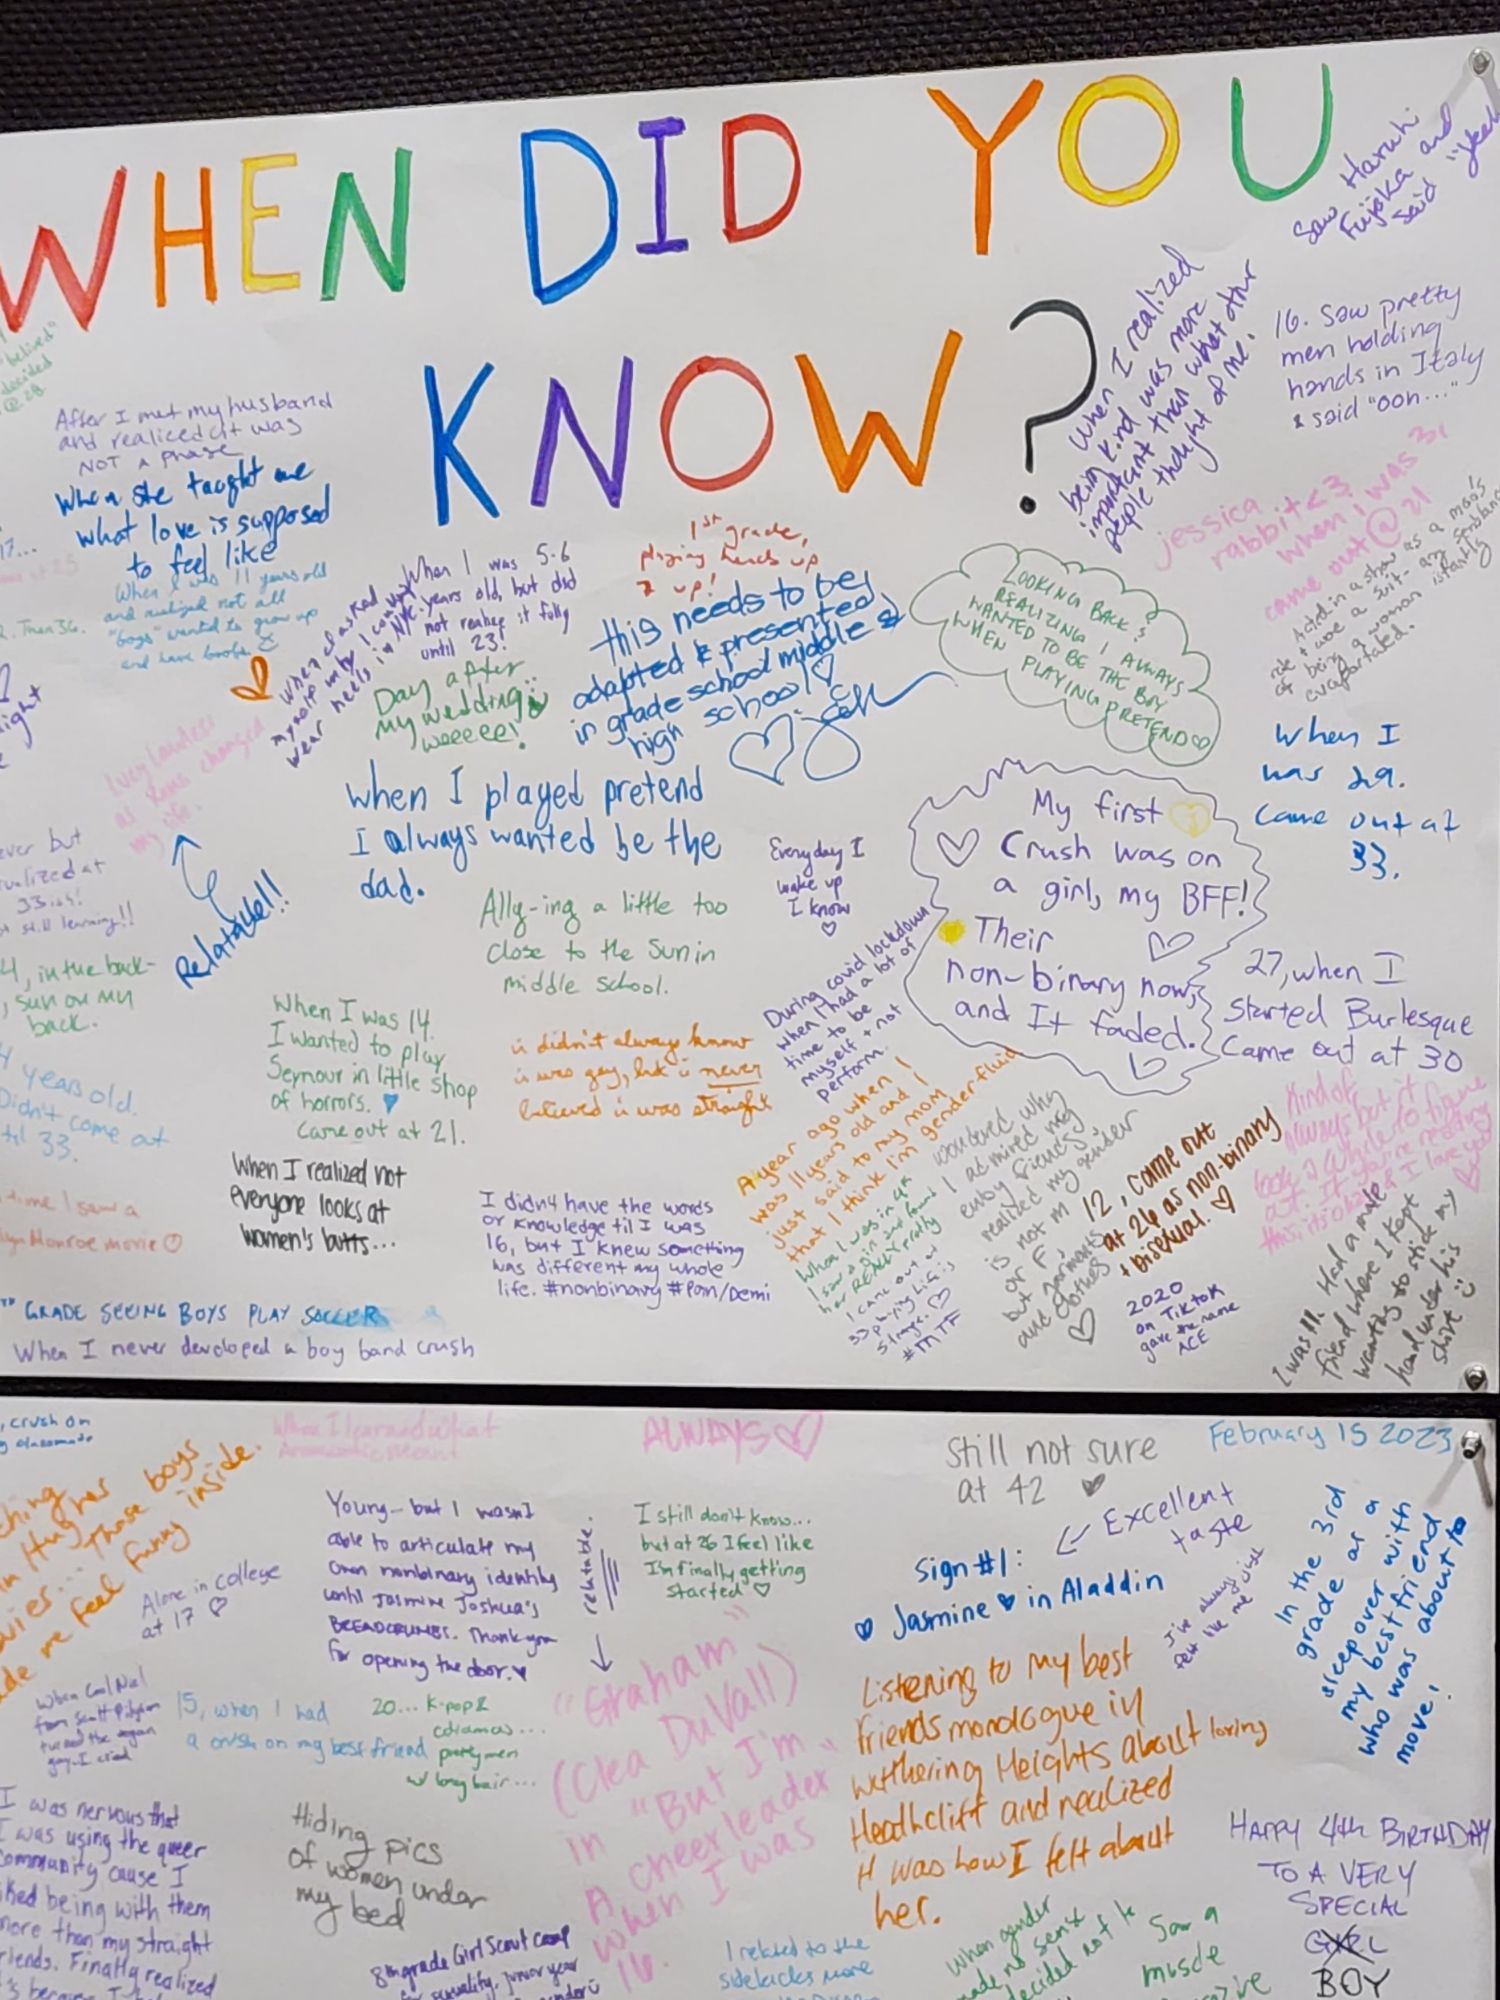 WHEN DID YOU
KNOW?
Saw Haruhi
Fujioka and
said "yeah
When I realized
being kind was more
important than what other
people thought of me.
16. Saw pretty
men holding
hands in Italy
& said "ooh..."
jessica
rabbit <3
when I was
came out @ 21
31
Acted in a show as a
role & wore a suit- any semblance
of being a woman instantly
evaporated.
"belived"
decided
@ 28
After I met my husband
and realiced it was
NOT A phase
When she taught me
what love is supposed
to feel like
17...
When I was 11 years old
and realized not all
"boys" wanted to grow up
and have boobs
2. Then 36.
When I asked
myself why I
wear heels in
When I was 5-6
years old, but did
not realize it fully
until 23!
1st grade,
playing heads up
7 up!
this needs to be
adapted & presented
in grade school middle &
high school!
LOOKING BACK &
REALIZING I ALWAYS
WANTED TO BE THE BOY
WHEN PLAYING PRETEND
Day after
my wedding
weeeee!
Lucy Lawless
as Xena changed
my life.
Relatable!!
When I played pretend
I always wanted be the
dad.
When I
was 29.
Came out at
33.
My first
Crush was on
a girl, my BFF!
Their
non-binary now,
and It faded.
Everyday I
wake up
I know
Ally-ing a little too
Close to the Sun in
middle school.
During covid lockdown
when I had a lot of
time to be
myself + not
perform.
27, when I
Started Burlesque
Came out at 30
ever but
realized at
33ish!
still learning!!
4, in the back-
, sun on my
back.
4 years old.
Didn't come out
til 33.
When I was 14.
I wanted to play
Seymour in little shop
of horrors.
Came out at 21.
i didn't always know
i was gay, but i never
believed i was straight
When I realized not
everyone looks at
women's butts...
I didn't have the words
or knowledge til I was
16, but I knew something
was different my whole
life. #nonbinary #Pan/Demi
A year ago when I
was 11 years old and I
just said to my mom
that I think I'm genderfluid
When I was in
I saw a
her REALLY pretty
I came out at
33
#MTF
wondered why
I admired my
enby friends,
realized my gender
is not M
or F,
but
and clothes
12, came out
at 26 as non-binary
+ bisexual.
2020
on TikTok
gave the name
ACE
Kind of
always but it
took a while to figure
out. If you're reading
this, it's okay & I love you
I was 11. Had a male
friend where I kept
wanting to stick my
hand under his
shirt
time I saw a
Monroe movie
GRADE SEEING BOYS PLAY SOCCER
When I never developed a boy band crush
, crush on
When I learned what
Aromantic meant
ALWAYS
Still not sure
at 42
February 15 2023
Hughes
... Those boys
made me feel funny inside.
Alone in college
at 17
Young- but I wasn't
able to articulate my
own nonbinary identity
until Jasmine Joshua's
BREADCRUMBS. Thank you
for opening the door.
relatable.
I still don't know...
but at 26 I feel like
I'm finally getting
started
Excellent
taste
Sign #1:
Jasmine in Aladdin
I've always
felt like me
In the 3rd
grade at a
sleepover with
my best friend
who was about to
move!
from Scott Pilgrim
turned the vegan
gay. I cried
15, when I had
a crush on my best friend
20... K-pop &
cdramas...
pretty men
w/ long hair...
"Graham"
(Clea DuVall)
in "But I'm
A cheerleader"
when I was
16.
Listening to my best
friends monologue in
Wuthering Heights about loving
Heathcliff and realized
it was how I felt about
her.
I was nervous that
I was using the queer
community cause I
liked being with them
more than my straight
friends. Finally realized
Hiding pics
of women under
my bed
8th grade Girl Scout Camp
sexuality, junior year
I related to the
sidekicks more
When gender
made no sense
decided not to
Saw a
muscle
HAPPY 4th BIRTHDAY
TO A VERY
SPECIAL
GIRL
BOY